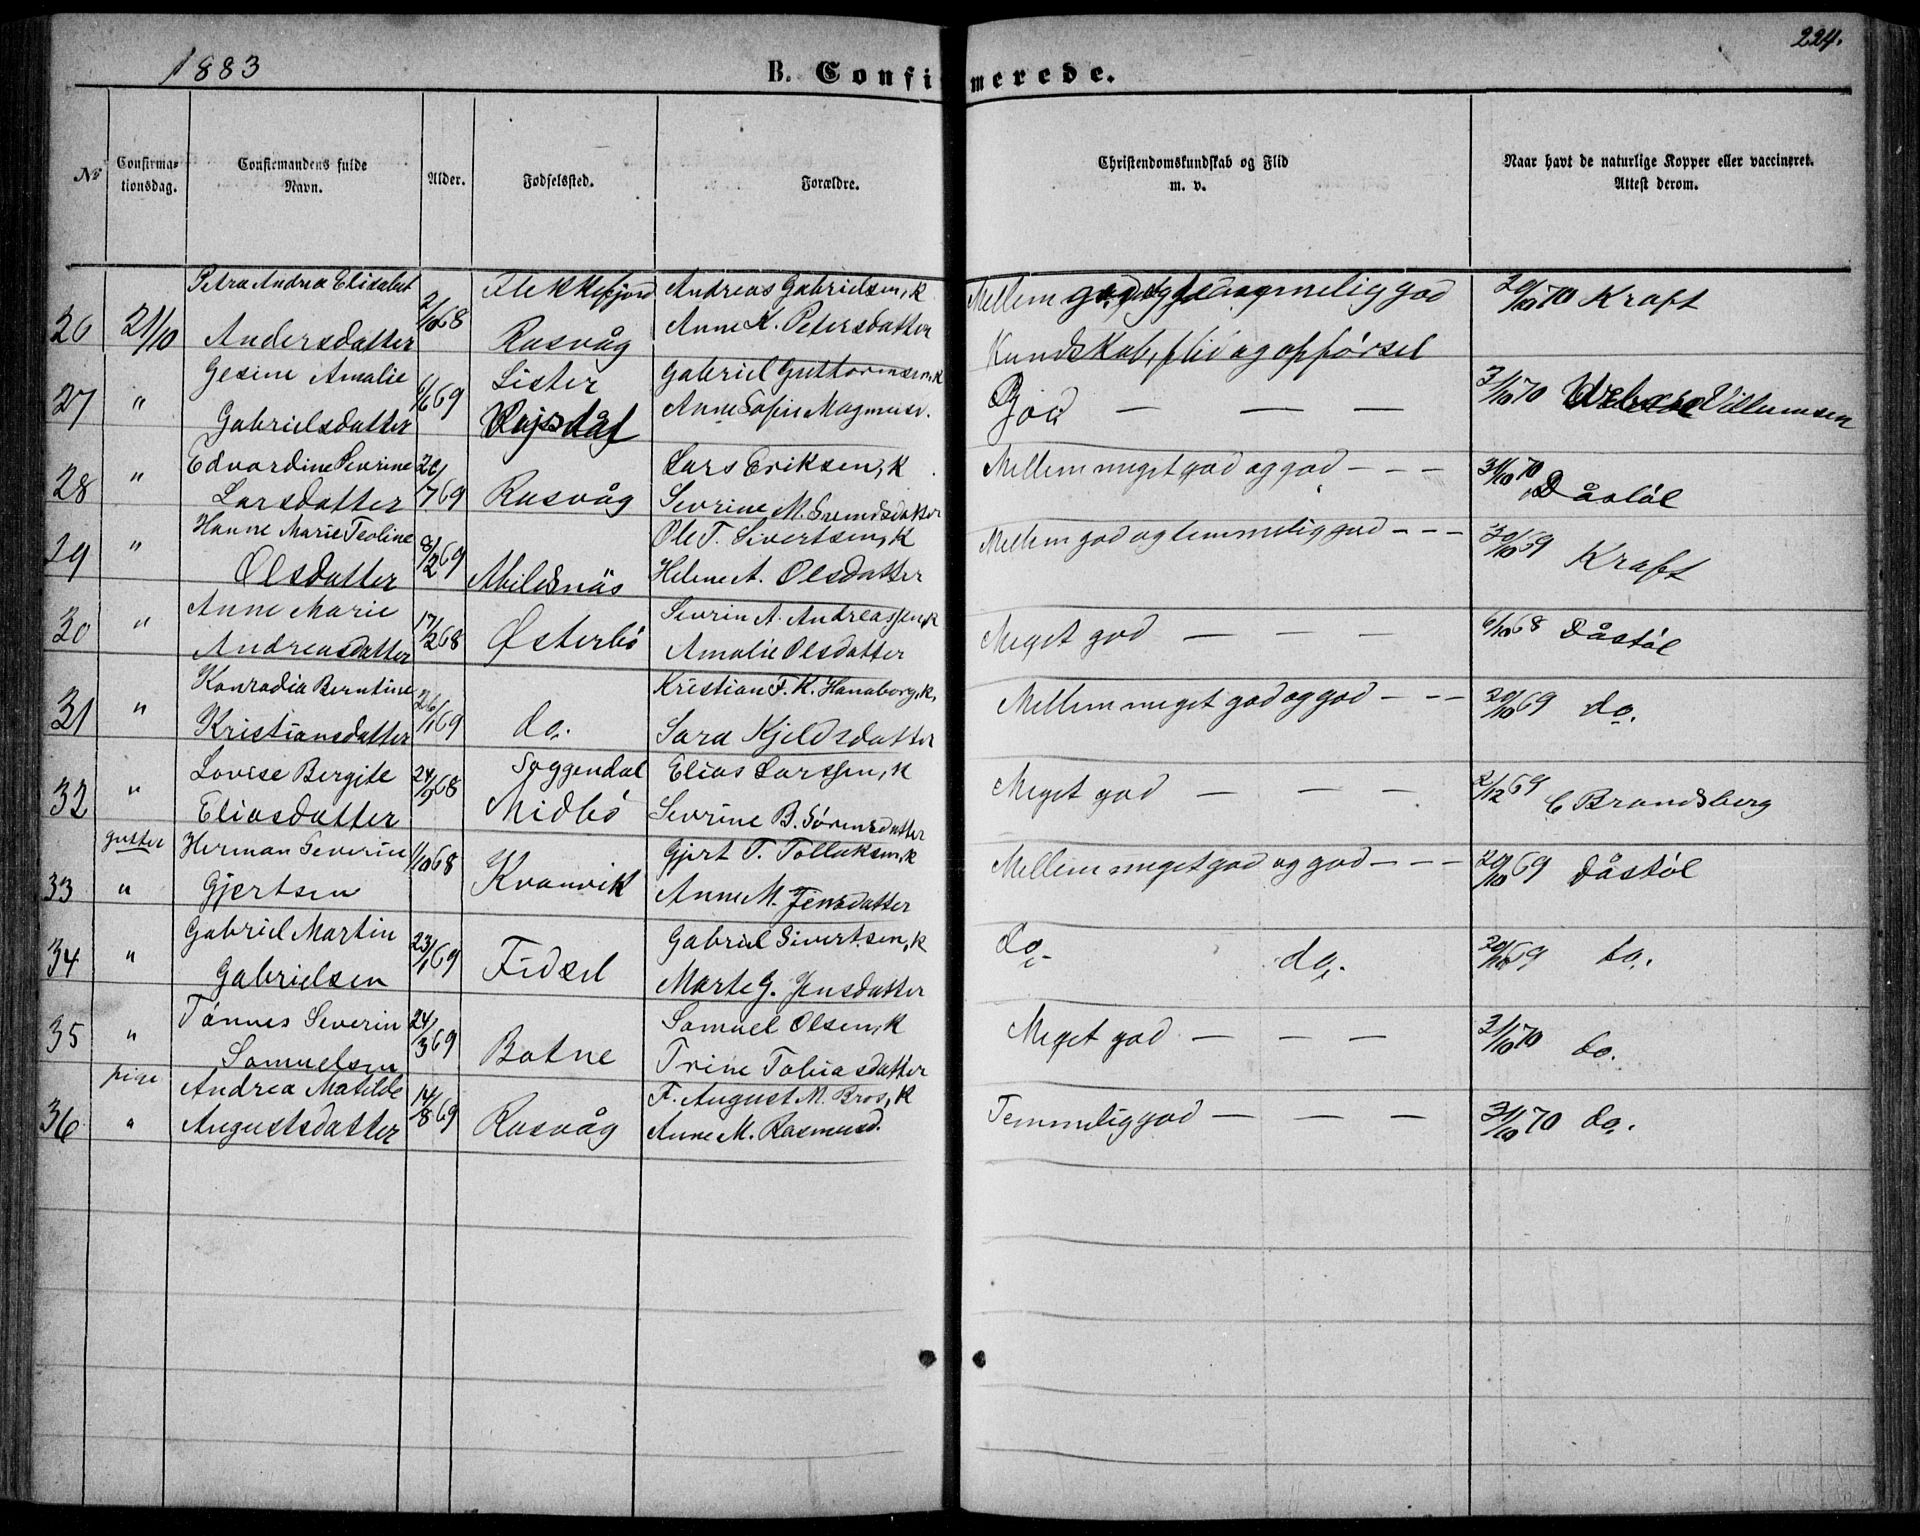 1883
B. Confirmerede.
224.
No
Confirma=
tionsdag.
Confirmandens fulde
Navn.
Alder.
Fødselssted.
Forældre.
Christendomskundskab og Flid
m. v.
Naar havt de naturlige Kopper eller vaccineret.
Attest derom.
Petra Andrea Elisabet Flekkefjord Andreas Gabrielsen, K Mellem god og temmelig god 20/10 70 Kraft
26 21/10 Andersdatter 2/10 68 Rasvåg Anne K. Petersdatter Kundskab, flid og opførsel
Gesine Amalie Lister Gabriel Guttormsen, K
27 " Gabrielsdatter 1/6 69 Anne Sofie Magnusd. God — — — 31/10 70 Villumsen
Edvardine Sevrine Lars Eriksen, K Mellem meget god og god - - - 31/10 70
28 " Larsdatter 20/7 69 Rasvåg Sevrine M. Svendsdatter Dåstøl
Hanne Marie Teoline Ole T. Sivertsen, K Mellem god og temmelig god - - - 30/10 69
29 " Olsdatter 8/2 69 Abilsnäs Helene A. Olsdatter Kraft
Anne Marie Sevrin A. Andreassen, K
30 " Andreasdatter 17/2 68 Østerbö Amalie Olsdatter Meget god — — — 6/10 68 Dåstøl
Konradia Berntine Kristian F. K. Hanaborg, K, Mellem meget god og god - - -
31 " Kristiansdatter 26/1 69 do. Sara Kjeldsdatter 20/10 69 do.
Lovise Bergite Soggendal Elias Larssen, K
32 " Eliasdatter 24/9 68 Midbö Sevrine B. Sörensdatter Meget god — — — 2/12 69 C Brandsberg
gutter Herman Severin Gjert T. Tollaksen, K
33 " Gjertsen 1/10 68 Kvanvik Anne M. Jensdatter Mellem meget god og god - - - 20/10 69 Dåstøl
Gabriel Martin Gabriel Sivertsen, K
34 " Gabrielsen 23/1 69 Fidsel Marte G. Jensdatter do. do. 20/10 69 do.
Tønnes Severin Samuel Olsen, K
35 " Samuelsen 24/3 69 Botne Trine Tobiasdatter Meget god — — — 31/10 70 do.
pige Andrea Matilde F. August M. Bros, K
36 " Augustsdatter 14/8 69 Rasvåg Anne M. Rasmusd. Temmelig god — — — 31/10 70 do.